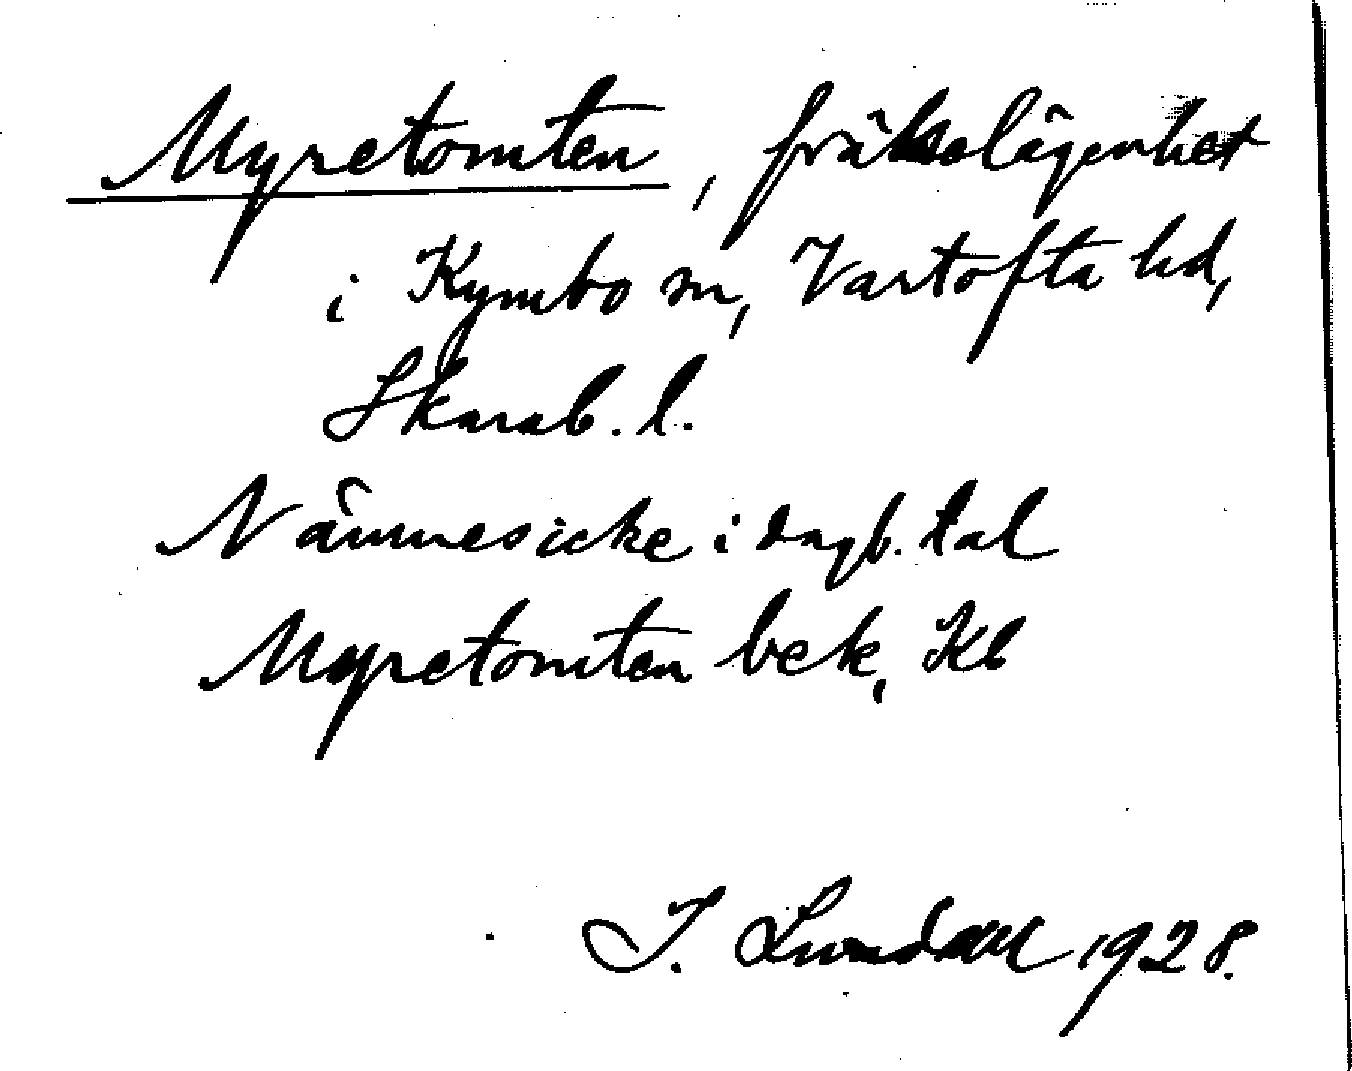 Myretomten, frälselägenhet
i Kymbo sn, Vartofta hd,
Skarab. l.
Nämnes icke i dagb. tal
Myretomten bek, Kb
I. Lundahl 1928.